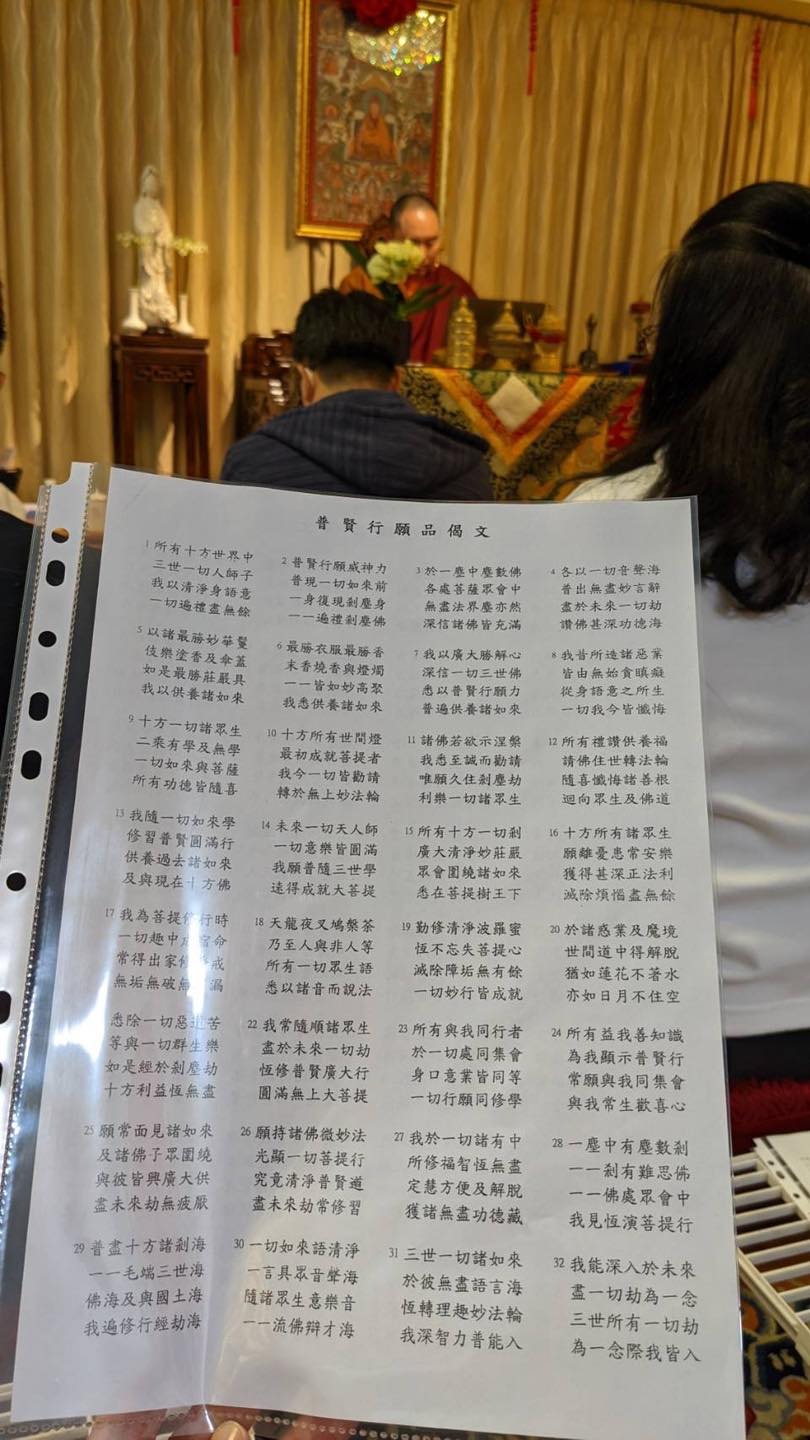 普賢行願品偈文
1 所有十方世界中
三世一切人師子
我以清淨身語意
一切遍禮盡無餘
2 普賢行願威神力
普現一切如來前
一身復現剎塵身
一一遍禮剎塵佛
3 於一塵中塵數佛
各處菩薩眾會中
無盡法界塵亦然
深信諸佛皆充滿
4 各以一切音聲海
普出無盡妙言辭
盡於未來一切劫
讚佛甚深功德海
5 以諸最勝妙華鬘
伎樂塗香及傘蓋
如是最勝莊嚴具
我以供養諸如來
6 最勝衣服最勝香
末香燒香與燈燭
一一皆如妙高聚
我悉供養諸如來
7 我以廣大勝解心
深信一切三世佛
悉以普賢行願力
普遍供養諸如來
8 我昔所造諸惡業
皆由無始貪瞋癡
從身語意之所生
一切我今皆懺悔
9 十方一切諸眾生
二乘有學及無學
一切如來與菩薩
所有功德皆隨喜
10 十方所有世間燈
最初成就菩提者
我今一切皆勸請
轉於無上妙法輪
11 諸佛若欲示涅槃
我悉至誠而勸請
唯願久住剎塵劫
利樂一切諸眾生
12 所有禮讚供養福
請佛住世轉法輪
隨喜懺悔諸善根
迴向眾生及佛道
13 我隨一切如來學
修習普賢圓滿行
供養過去諸如來
及與現在十方佛
14 未來一切天人師
一切意樂皆圓滿
我願普隨三世學
速得成就大菩提
15 所有十方一切剎
廣大清淨妙莊嚴
眾會圍繞諸如來
悉在菩提樹王下
16 十方所有諸眾生
願離憂患常安樂
獲得甚深正法利
滅除煩惱盡無餘
17 我為菩提修行時
一切趣中成宿命
常得出家修戒
無垢無破無漏
18 天龍夜叉鳩槃荼
乃至人與非人等
所有一切眾生語
悉以諸音而說法
19 勤修清淨波羅蜜
恆不忘失菩提心
滅除障垢無有餘
一切妙行皆成就
20 於諸惑業及魔境
世間道中得解脫
猶如蓮花不著水
亦如日月不住空
悉除一切惡道苦
等與一切群生樂
如是經於剎塵劫
十方利益恆無盡
22 我常隨順諸眾生
盡於未來一切劫
恆修普賢廣大行
圓滿無上大菩提
23 所有與我同行者
於一切處同集會
身口意業皆同等
一切行願同修學
24 所有益我善知識
為我顯示普賢行
常願與我同集會
與我常生歡喜心
25 願常面見諸如來
及諸佛子眾圍繞
與彼皆興廣大供
盡未來劫無疲厭
26 願持諸佛微妙法
光顯一切菩提行
究竟清淨普賢道
盡未來劫常修習
27 我於一切諸有中
所修福智恆無盡
定慧方便及解脫
獲諸無盡功德藏
28 一塵中有塵數剎
一一剎有難思佛
一一佛處眾會中
我見恆演菩提行
29 普盡十方諸剎海
一一毛端三世海
佛海及與國土海
我遍修行經劫海
30 一切如來語清淨
一言具眾音聲海
隨諸眾生意樂音
一一流佛辯才海
31 三世一切諸如來
於彼無盡語言海
恆轉理趣妙法輪
我深智力普能入
32 我能深入於未來
盡一切劫為一念
三世所有一切劫
為一念際我皆入